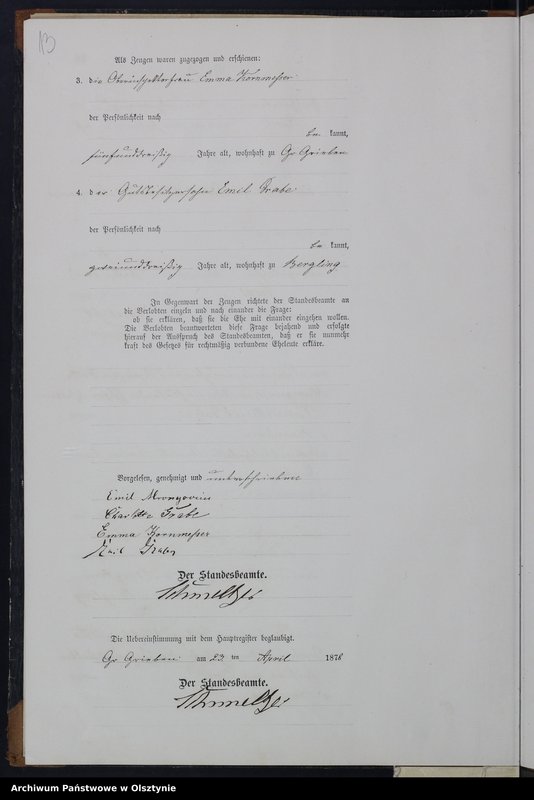 13
Als Zeugen waren zugezogen und erschienen:
3. die Oberinspektorfrau Emma Kornmesser
der Persönlichkeit nach
be kannt,
fünfunddreißig Jahre alt, wohnhaft zu Gr Grieben
4. der Gutsbesitzersohn Emil Grabe
der Persönlichkeit nach
be kannt,
zweiunddreißig Jahre alt, wohnhaft zu
In Gegenwart der Zeugen richtete der Standesbeamte an
die Verlobten einzeln und nach einander die Frage:
ob sie erklären, daß sie die Ehe mit einander eingehen wollen.
Die Verlobten beantworteten diese Frage bejahend und erfolgte
hierauf der Ausspruch des Standesbeamten, daß er sie nunmehr
kraft des Gesetzes für rechtmäßig verbundene Eheleute erkläre.
Vorgelesen, genehmigt und unterschrieben
Emil Mrongovius
Charlotte Grabe
Emma Kornmesser
Emil Grabe
Der Standesbeamte.
Die Uebereinstimmung mit dem Hauptregister beglaubigt.
Gr Grieben am 23 ten April 1878
Der Standesbeamte.
Archiwum Państwowe w Olsztynie